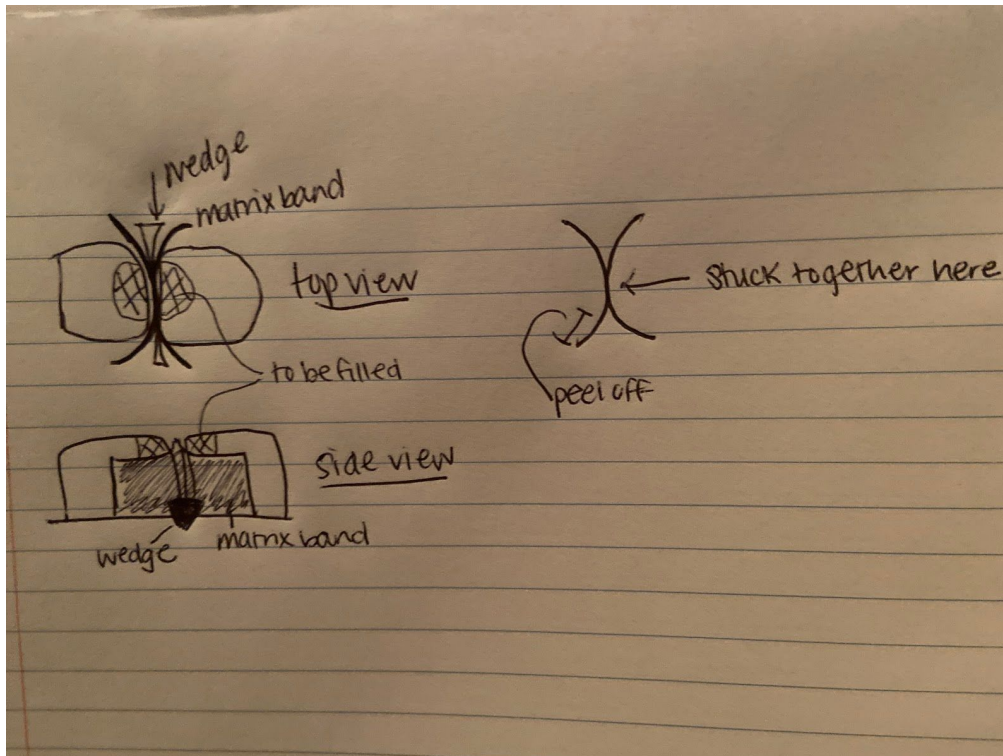 wedge
matrix band
top view
stuck together here
to be filled
peel off
side view
wedge
matrix band